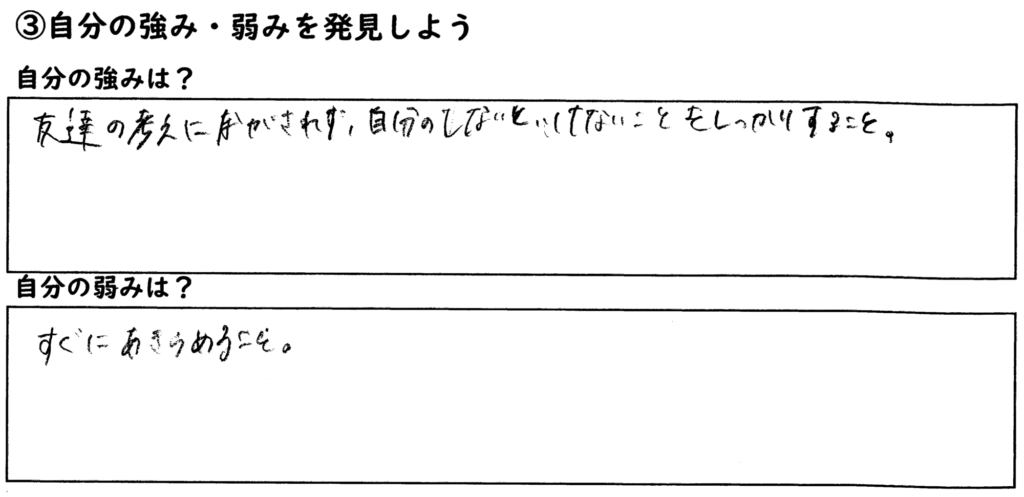 ③自分の強み・弱みを発見しよう
自分の強みは？
友達の考えにながされず、自分のしないといけないことをしっかりすること。
自分の弱みは？
すぐにあきらめること。